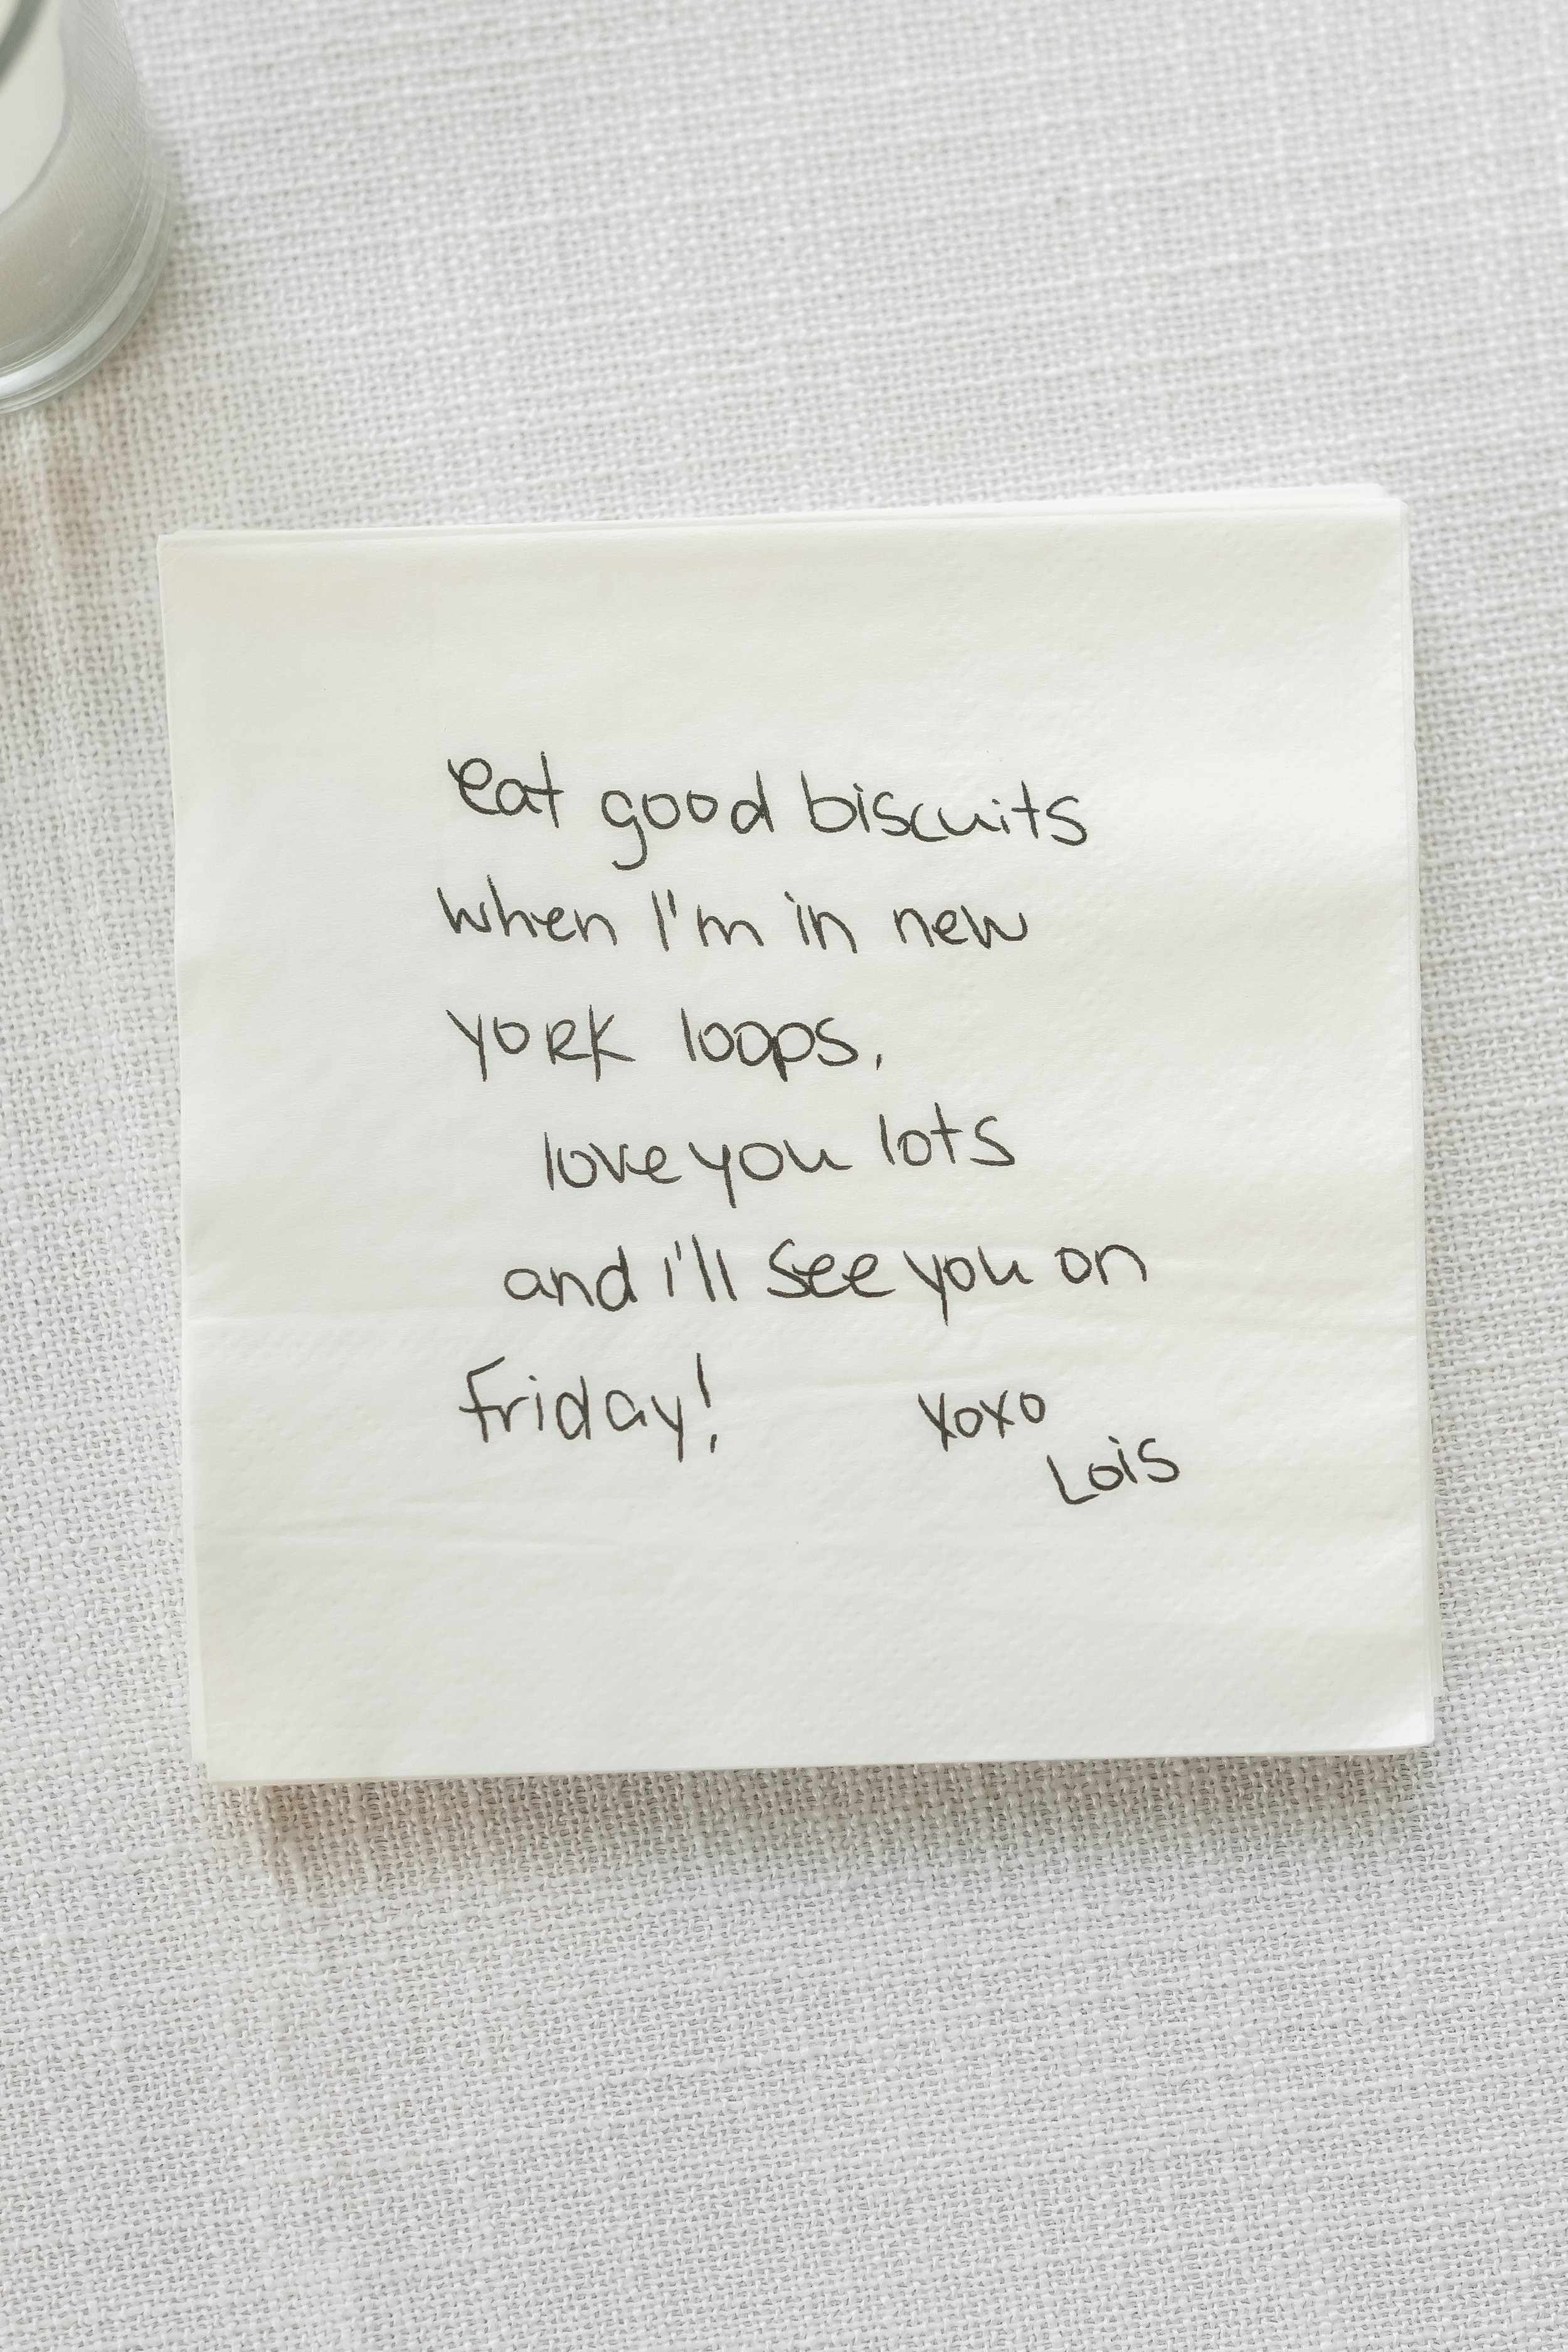 eat good biscuits
when I'm in new
york loops,
love you lots
and i'll see you on
friday!
xoxo
Lois